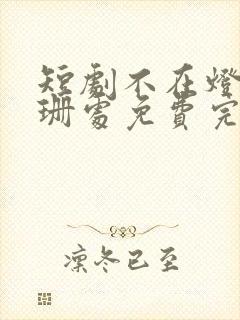 短劇不在燈
珊處免費完
凜冬已至